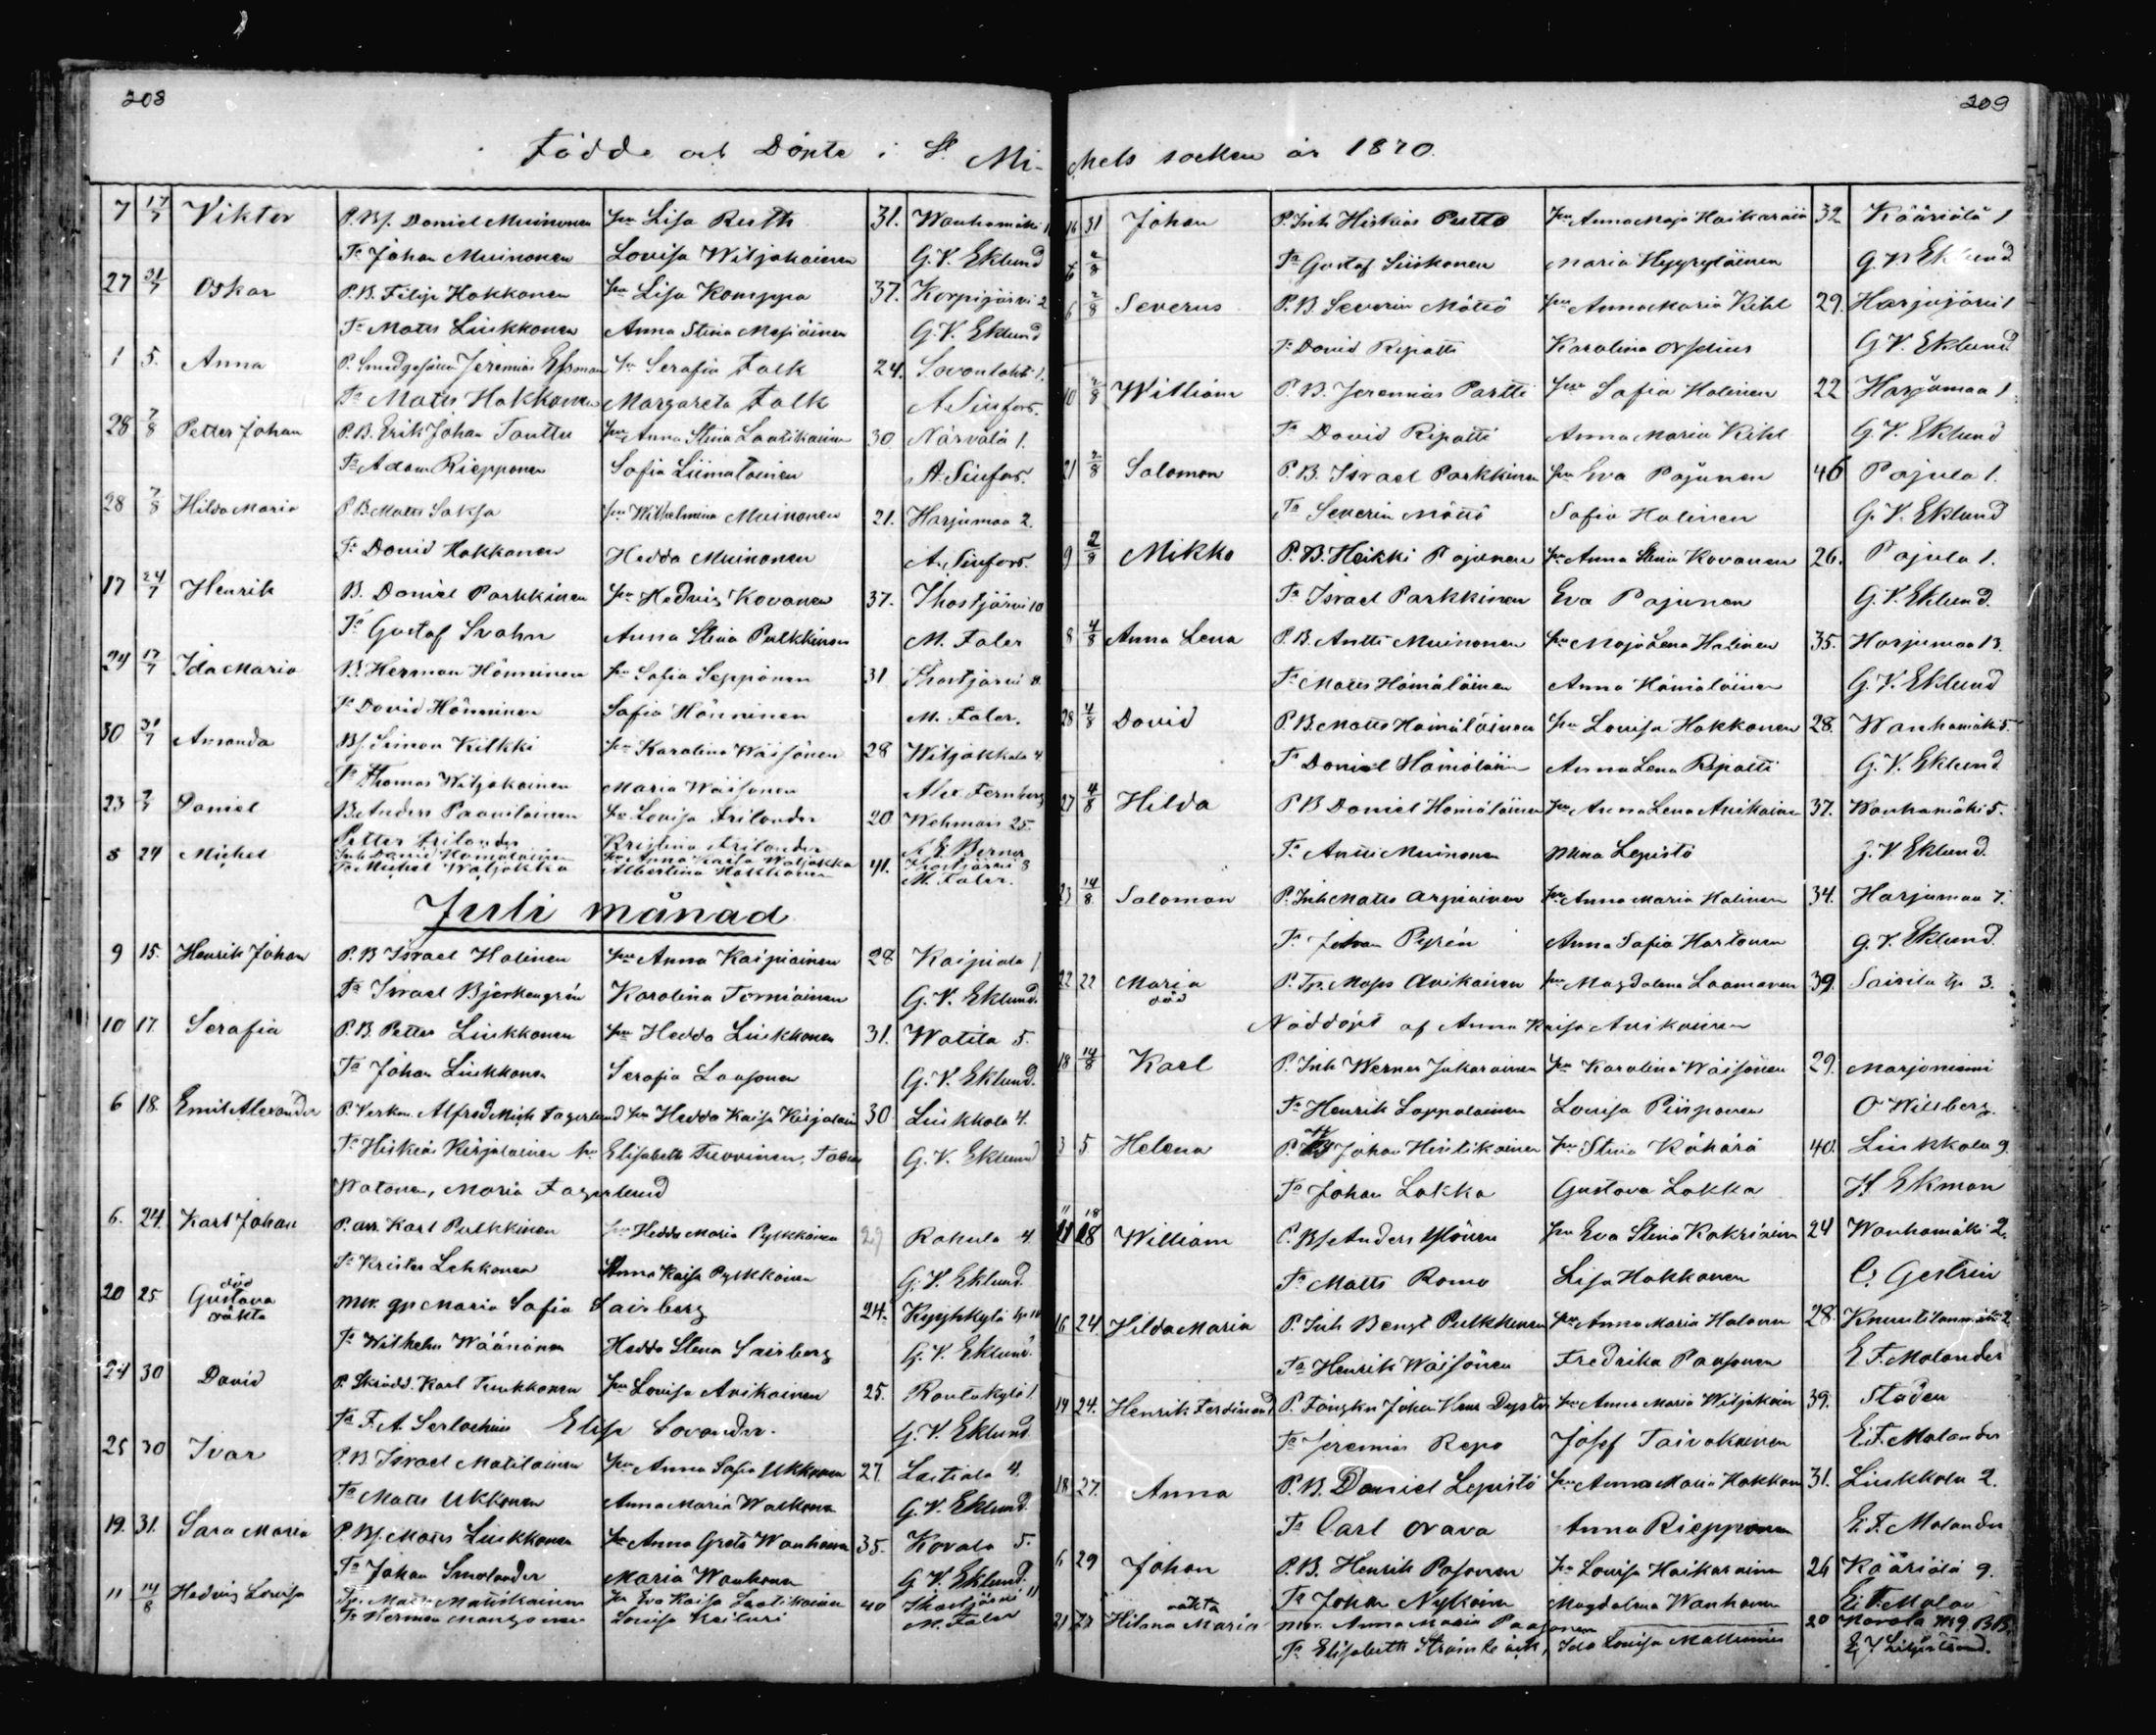 208
Födde och Döpte i St Mi-
7 17/7 Viktor P. Bf. Daniel Muinonen hu Lisa Ruth 31. Wanhamäki 1
Fr Johan Muinonen Lovisa Wiljakainen G. V. Eklund
27 31/7 Oskar P. B. Filip Hokkanen hu Lisa Komppa 37. Korpijärvi 2
Fr Matts Liukkonen Anna Stina G. V. Eklund
1 5. Anna P. Jeremias hu Serafia Falk 24.
Fr Matts Hokkanen Margareta Falk A. Sinfors.
28 7/8 Petter Johan P. B. Erik Johan Tanttu hu Anna Stina Laatikainen 30 Närvälä 1.
Fr Adam Riepponen Sofia Liimatainen A. Sinfors.
28 7/8 Hilda Maria P. B. Matts Saksa hu Wilhelmina Muinonen 21. Harjumaa 2.
Fr David Hokkanen Hedda Muinonen A. Sinfors.
17 24/7 Henrik B. Daniel Parkkinen hu Hedvig Kovanen 37. Ihastjärvi 10
Fr Gustaf Svahn Anna Stina Pulkkinen M. Faler
24 17/7 Ida Maria B. Herman Hänninen hu Sofia Seppänen 31 Ihastjärvi 8
Fr David Hänninen Sofia Hänninen M. Faler.
30 31/7 Amanda Bf. Simon Kilkki hu Karolina Wäisänen 28 Wiljakkala 4
Fr Thomas Wiljakainen Maria Wäisänen Alex. Fernberg
23 Daniel B. Anders Paavilainen hu Lovisa Frilander 20 Wehmais 25.
Petter Frilander Kristina Frilander A. E. Berner
5 24 Michel Inh David Hämäläinen hu Anna Kaisa Waljakka 41. Ihastjärvi 8
Fr Michel Waljakka Albertina Hokkanen M. Faler.
Juli månad
9 15. Henrik Johan P. B Israel Halinen hu Anna Kaipiainen 28 Kaipiala 1
Fr Israel Björkengrén Karolina Torniainen G. V. Eklund.
10 17. Serafia P. B. Petter Liukkonen hu Hedda Liukkonen 31. Watila 5.
Fr Johan Liukkonen Serafia Laasonen G. V. Eklund.
6 18. Emil Alexander P. Verkm. Alfred Mich. Fagerlund hu Hedda Kaisa Kirjalain 30 Liukkola 4.
Fr Hiskias Kirjalainen hu Elisabeth G. V. Eklund
Watanen, Maria Fagerlund
6. 24. Karl Johan P. arr. Karl Pulkkinen hu Hedda Maria Pylkkänen 29 Rahula 4.
Fr Krister Lehkonen Anna Kaisa Pylkkänen G. V. Eklund.
20 25. död Gustava oäkta mor. gp Maria Sofia Sairberg 24. Kyyhkylä
Fr Wilhelm Wäänänen Hedda Stena Sairberg G. V. Eklund.
24 30 David P. Skrädd. Karl Tuukkanen hu Lovisa Anikainen 25. Rantakylä 1.
Fr F. A. Serlachius Elise Savander. G. V. Eklund.
25 30 Ivar P. B Israel Matilainen hu Anna Sofia Ukkonen 27. Laitiala 4.
Fr Matts Ukkonen Anna Maria Walkonen G. V. Eklund.
19. 31. Sara Maria P. Bf. Matts Liukkonen hu Anna Greta Wanhanen 35. Kovala 5.
Fr Johan Smolander Maria Wanhanen G. V. Eklund.
11 14/8 Hedvig Lovisa Tp. Matts hu Eva Kaisa Laatikainen 40 Ihastjärvi 11
Fr Herman Lovisa Keituri M. Faler
209
chels socken år 1870.
16 31 Johan P. Inh Hiskias Putto hu Anna Maja Haikarain 32 Kääriälä 1
Fr Gustaf Siiskonen Maria Hyyryläinen G. V. Eklund
6 2/8 Severus P. B. Severin Mättö hu Anna Maria Kihl 29. Harjujärvi 1
Fr David Ripatti Karolina G. V. Eklund.
10 2/8 William P. B. Jeremias Partti hu Sofia Halinen 22 Harjumaa 1
Fr David Ripatti Anna Maria Kihl G. V. Eklund
21 2/8 Salomon P. B. Israel Parkkinen hu Eva Pajunen 46 Pajula 1.
Fr Severin Mättö Sofia Halinen G. V. Eklund
9 2/8 Mikko P. B. Heikki Pajunen hu Anna Stina Kovanen 26. Pajula 1.
Fr Israel Parkkinen Eva Pajunen G. V. Eklund.
8 4/8 Anna Lena P. B. Antti Muinonen hu Maja Lena Halinen 35. Harjumaa 13.
Fr Matts Hämäläinen Anna Hämäläinen G. V. Eklund
28 4/8 David P. B. Matts Hämäläinen hu Lovisa Hokkanen 28. Wanhamäki 5.
Fr Daniel Hämäläinen Anna Lena Ripatti G. V. Eklund
27 4/8 Hilda P. B Daniel Hämäläinen hu Anna Lena Anikainen 37. Wanhamäki 5.
Fr Antti Muinonen Mina Lepistö G. V. Eklund.
23 14/8 Salomon P. Inh Matts Arpiainen hu Anna Maria Halinen 34. Harjumaa 7.
Fr Johan Pyrén Anna Sofia Hartonen G. V. Eklund.
22 22 Maria död P. Tp. Moses Anikainen hu Magdalena Laamanen 39. Sairila tp 3.
Nöddöpt af Anna Kaisa Anikainen
18 14/8 Karl P. Inh Werner Jukarainen hu Karolina Wäisänen 29. Marjoniemi
Fr Henrik Lappalainen Lovisa Piispanen O Wilsberg.
3 5. Helena P. Johan Hintikainen hu Stina Kähärä 40. Liukkola 9.
Fr Johan Lakka Gustava Lakka H Ekman
11 18 William P. Bf Anders Ylönen hu Eva Stina Kakriainen 24 Wanhamäki 2.
Fr Matts Romo Lisa Hokkanen C. Gestrin
16 24 Hilda Maria P. Inh Bengt Pulkkinen hu Anna Maria Halonen 28. Knuutilanmäki 2
Fr Henrik Wäisänen Fredrika Paasonen E. F. Molander
14 24. Henrik Ferdinand P. Johan hu Anna Maria Wiljakain 39. Staden
Fr Jeremias Repo Josef Taivakainen E. F. Molander
18 27. Anna P. B. Daniel Lepistö hu Anna Maria Hokkan 31. Liukkola 2.
Fr Carl Orava Anna Riepponen E. F. Molander
6 29 Johan P. B. Henrik Pasonen hu Lovisa Haikarainen 26 Kääriälä 9.
Fr Johan Nykänen Magdalena Wanhanen E. F. Molan
21 oäkta Hilma Maria mor. Anna Maria Paasonen 20
Fr Elisabeth Ida Lovisa